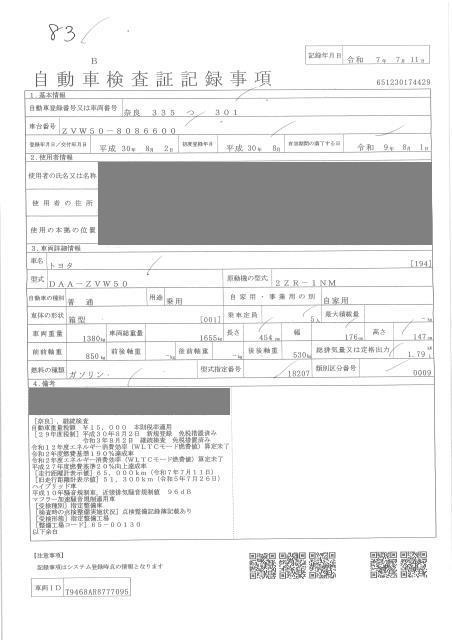 83
B
記録年月日 令和 7年 7月 11日
自動車検査証記録事項
651230174429
1.基本情報
自動車登録番号又は車両番号 奈良 335 つ 301
車台番号 ZVW50-8086600
登録年月日/交付年月日 平成 30年 8月 2日 初度登録年月 平成 30年 8月 有効期間の満了する日 令和 9年 8月 1日
2.使用者情報
使用者の氏名又は名称
使用者の住所
使用の本拠の位置
3.車両詳細情報
車名 トヨタ [194]
型式 DAA-ZVW50 原動機の型式 2ZR-1NM
自動車の種別 普通 用途 乗用 自家用・事業用の別 自家用
車体の形状 箱型 [001] 乗車定員 5人 最大積載量 -kg
車両重量 1380kg 車両総重量 1655kg 長さ 454cm 幅 176cm 高さ 147cm
前前軸重 850kg 前後軸重 -kg 後前軸重 -kg 後後軸重 530kg 総排気量又は定格出力 1.79L
燃料の種類 ガソリン 型式指定番号 18207 類別区分番号 0009
4.備考
[奈良],継続検査
自動車重量税額 ¥15,000 本則税率適用
[29年度税制]平成30年8月2日 新規登録 免税措置済み
令和3年8月2日 継続検査 免税措置済み
令和12年度エネルギー消費効率(WLTCモード燃費値)算定未了
令和2年度燃費基準190%達成車
令和2年度エネルギー消費効率(WLTCモード燃費値)算定未了
平成27年度燃費基準20%向上達成車
[走行距離計表示値]65,000km(令和7年7月11日)
[旧走行距離計表示値]51,300km(令和5年7月26日)
ハイブリッド車
平成10年騒音規制車,近接排気騒音規制値 96dB
マフラー加速騒音規制適用車
[受検種別]指定整備車
[検査時の点検整備実施状況]点検整備記録簿記載あり
[受検形態]指定整備工場
[整備工場コード]65-00130
以下余白
【注意事項】
記録事項はシステム登録時点の情報となります
車両ID T9468AR8777095